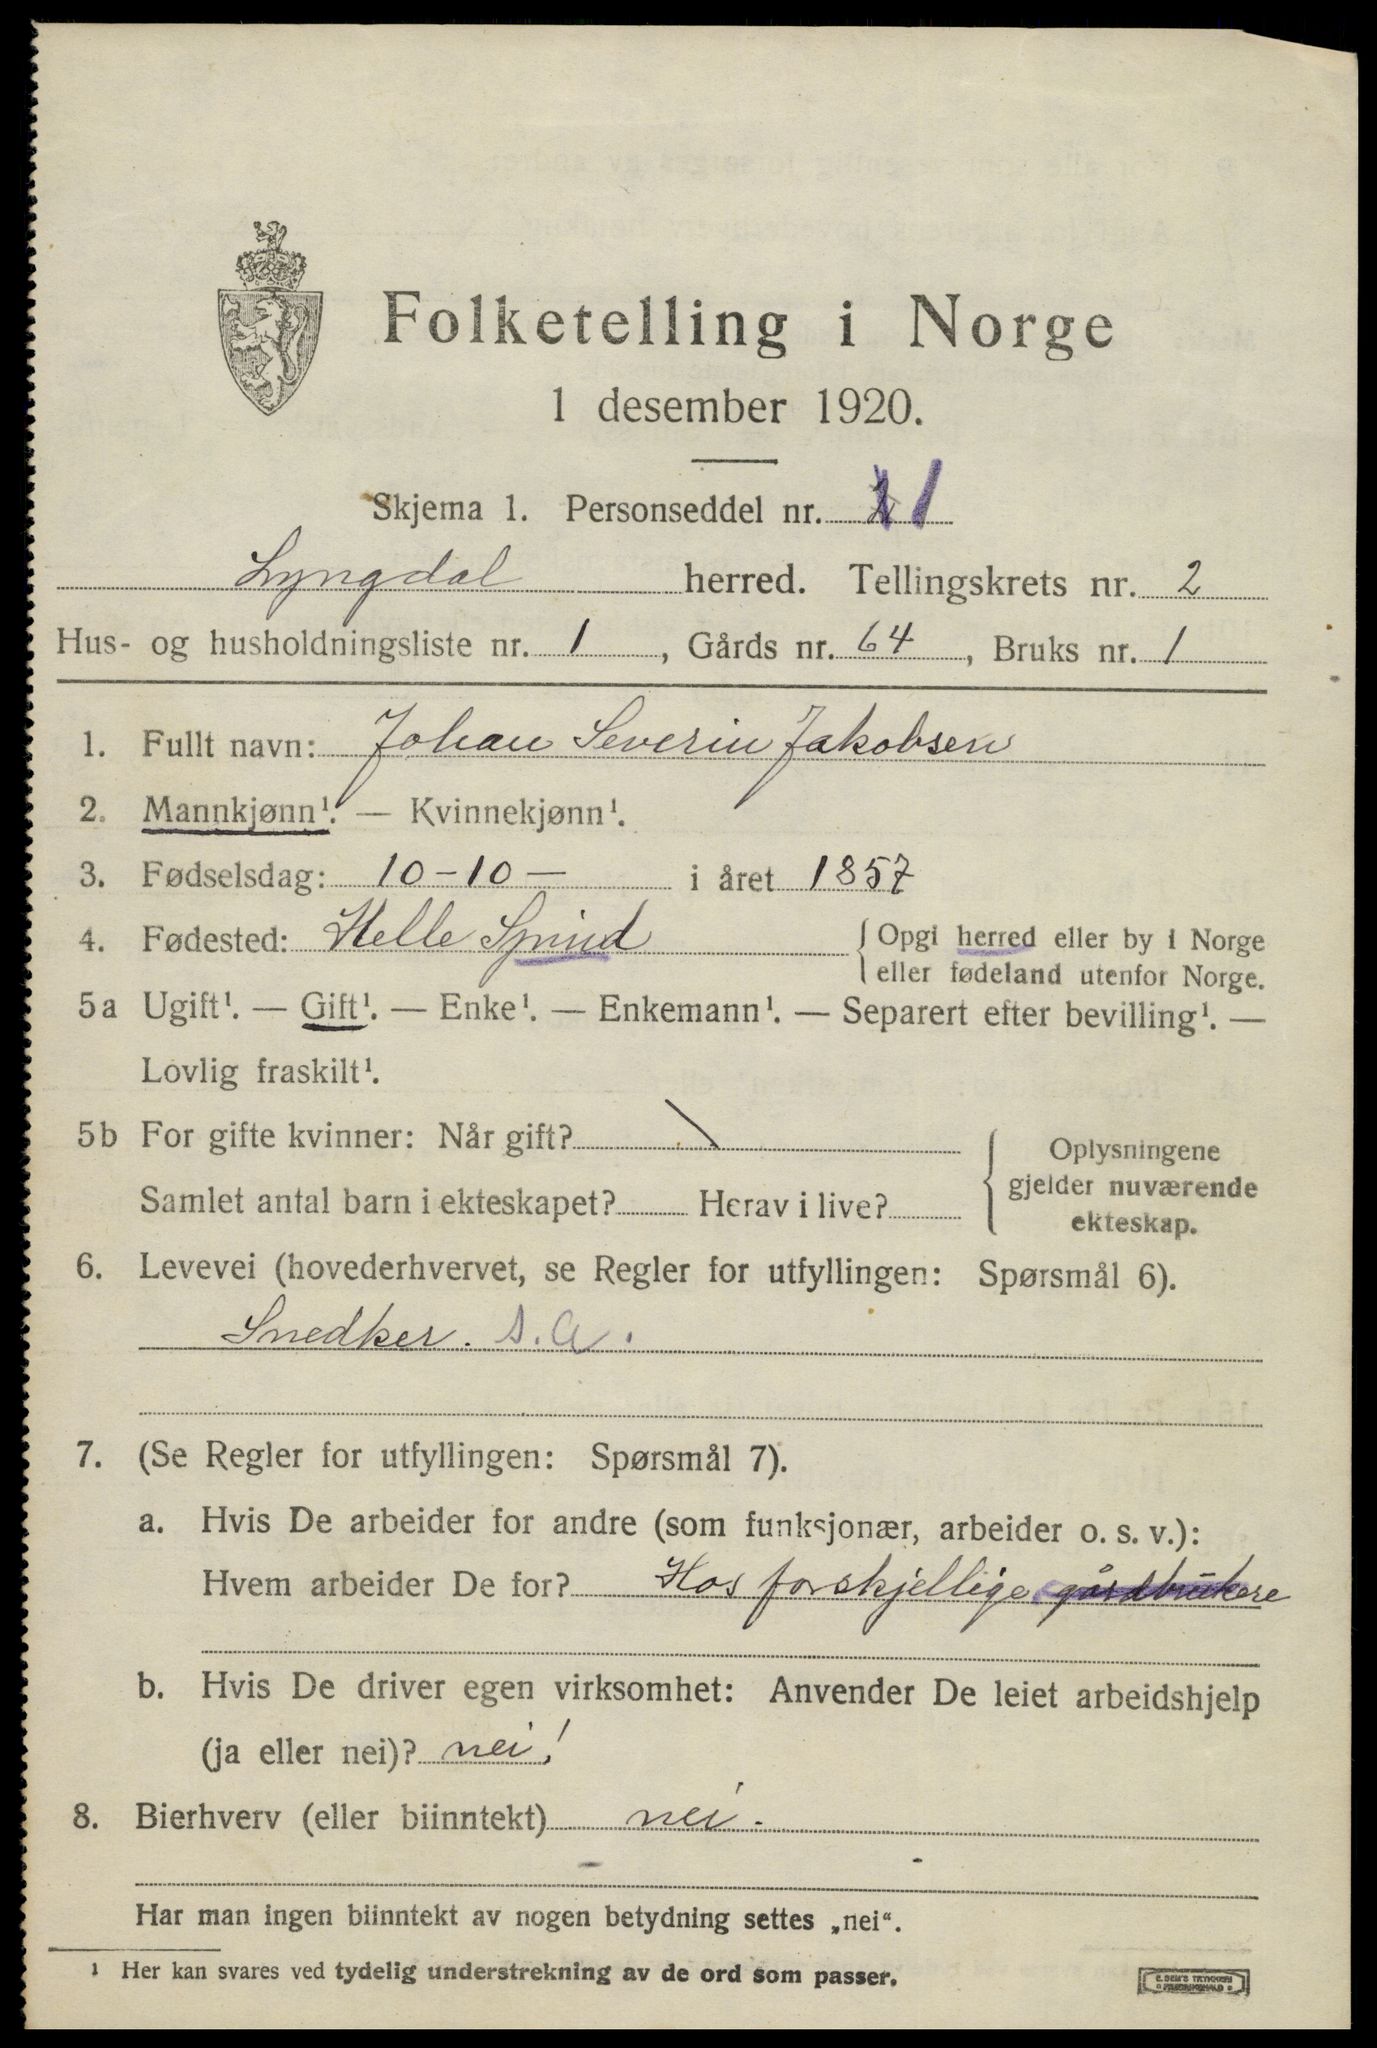 Folketelling i Norge
1 desember 1920.
Skjema 1. Personseddel nr. 1
Lyngdal herred. Tellingskrets nr. 2
Hus- og husholdningsliste nr. 1, Gårds nr. 64, Bruks nr. 1
1. Fullt navn: Johan Severin Jakobsen
2. Mannkjønn¹. — Kvinnekjønn¹.
3. Fødselsdag: 10-10- i året 1857
4. Fødested: Helle Spind { Opgi herred eller by i Norge
eller fødeland utenfor Norge.
5a Ugift¹. — Gift¹. — Enke¹. — Enkemann¹. — Separert efter bevilling¹. —
Lovlig fraskilt¹.
5b For gifte kvinner: Når gift? \ { Oplysningene
gjelder nuværende
ekteskap.
Samlet antal barn i ekteskapet? Herav i live?
6. Levevei (hovederhvervet, se Regler for utfyllingen: Spørsmål 6).
Snedker. s.a.
7. (Se Regler for utfyllingen: Spørsmål 7).
a. Hvis De arbeider for andre (som funksjonær, arbeider o. s. v.):
Hvem arbeider De for? Hos forskjellige gårdbrukere
b. Hvis De driver egen virksomhet: Anvender De leiet arbeidshjelp
(ja eller nei)? nei!
8. Bierhverv (eller biinntekt) nei.
Har man ingen biinntekt av nogen betydning settes „nei“.
¹ Her kan svares ved tydelig understrekning av de ord som passer.